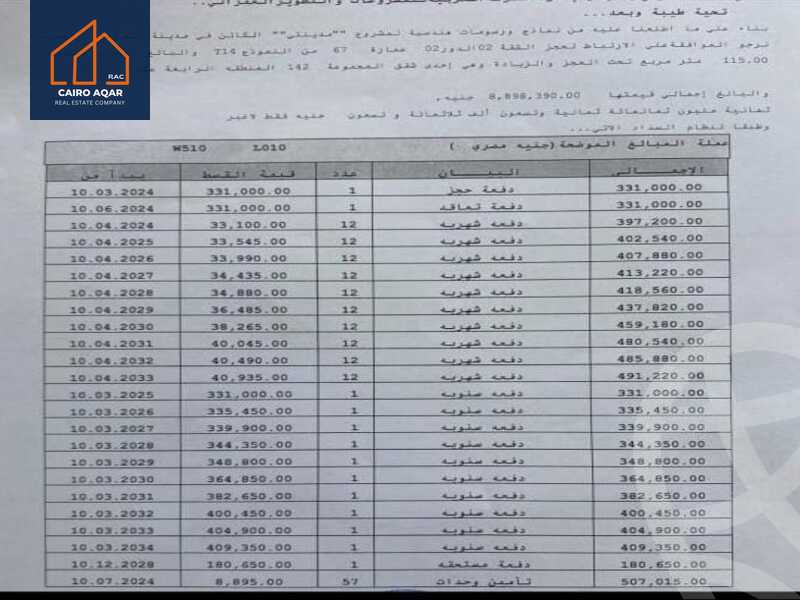 RAC
CAIRO AQAR
REAL ESTATE COMPANY
تحية طيبة وبعد...
بناء على ما اطلعنا عليه من نماذج ورسومات هندسية لمشروع ""مدينتي"" الكائن في مدينة
نرجو الموافقة على الارتباط لحجز الشقة 02 الدور 02 عمارة 67 من النموذج T14
115.00 متر مربع تحت العجز والزيادة وهي إحدى شقق المجموعة 142 المنطقه الرابعة
والبالغ إجمالي قيمتها 8,898,390.00 جنيه,
ثمانية مليون ثمانمائة ثمانية وتسعون ألف ثلاثمائة و تسعون جنيه فقط لاغير
وطبقا لنظام السداد الآتي...
عملة المبالغ الموضحة (جنيه مصري ) L010 W510
الإجمالي البيان عدد قيمة القسط يبدأ من
331,000.00 دفعة حجز 1 331,000.00 10.03.2024
331,000.00 دفعة تعاقد 1 331,000.00 10.06.2024
397,200.00 دفعه شهريه 12 33,100.00 10.04.2024
402,540.00 دفعه شهريه 12 33,545.00 10.04.2025
407,880.00 دفعه شهريه 12 33,990.00 10.04.2026
413,220.00 دفعه شهريه 12 34,435.00 10.04.2027
418,560.00 دفعه شهريه 12 34,880.00 10.04.2028
437,820.00 دفعه شهريه 12 36,485.00 10.04.2029
459,180.00 دفعه شهريه 12 38,265.00 10.04.2030
480,540.00 دفعه شهريه 12 40,045.00 10.04.2031
485,880.00 دفعه شهريه 12 40,490.00 10.04.2032
491,220.00 دفعه شهريه 12 40,935.00 10.04.2033
331,000.00 دفعه سنويه 1 331,000.00 10.03.2025
335,450.00 دفعه سنويه 1 335,450.00 10.03.2026
339,900.00 دفعه سنويه 1 339,900.00 10.03.2027
344,350.00 دفعه سنويه 1 344,350.00 10.03.2028
348,800.00 دفعه سنويه 1 348,800.00 10.03.2029
364,850.00 دفعه سنويه 1 364,850.00 10.03.2030
382,650.00 دفعه سنويه 1 382,650.00 10.03.2031
400,450.00 دفعه سنويه 1 400,450.00 10.03.2032
404,900.00 دفعه سنويه 1 404,900.00 10.03.2033
409,350.00 دفعه سنويه 1 409,350.00 10.03.2034
180,650.00 دفعة مستحقه 1 180,650.00 10.12.2028
507,015.00 تأمين وحدات 57 8,895.00 10.07.2024